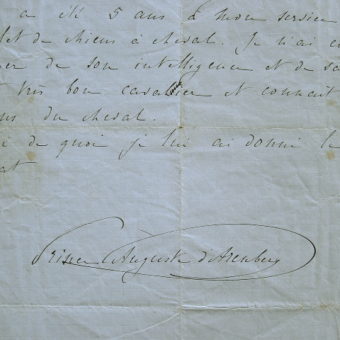 a été 5 ans à mon service
et de chiens à cheval. Je n'ai
de son intelligence et de
très bon cavalier et connait
du cheval.
de quoi je lui ai donné le
at
Prince Auguste d'Arenberg